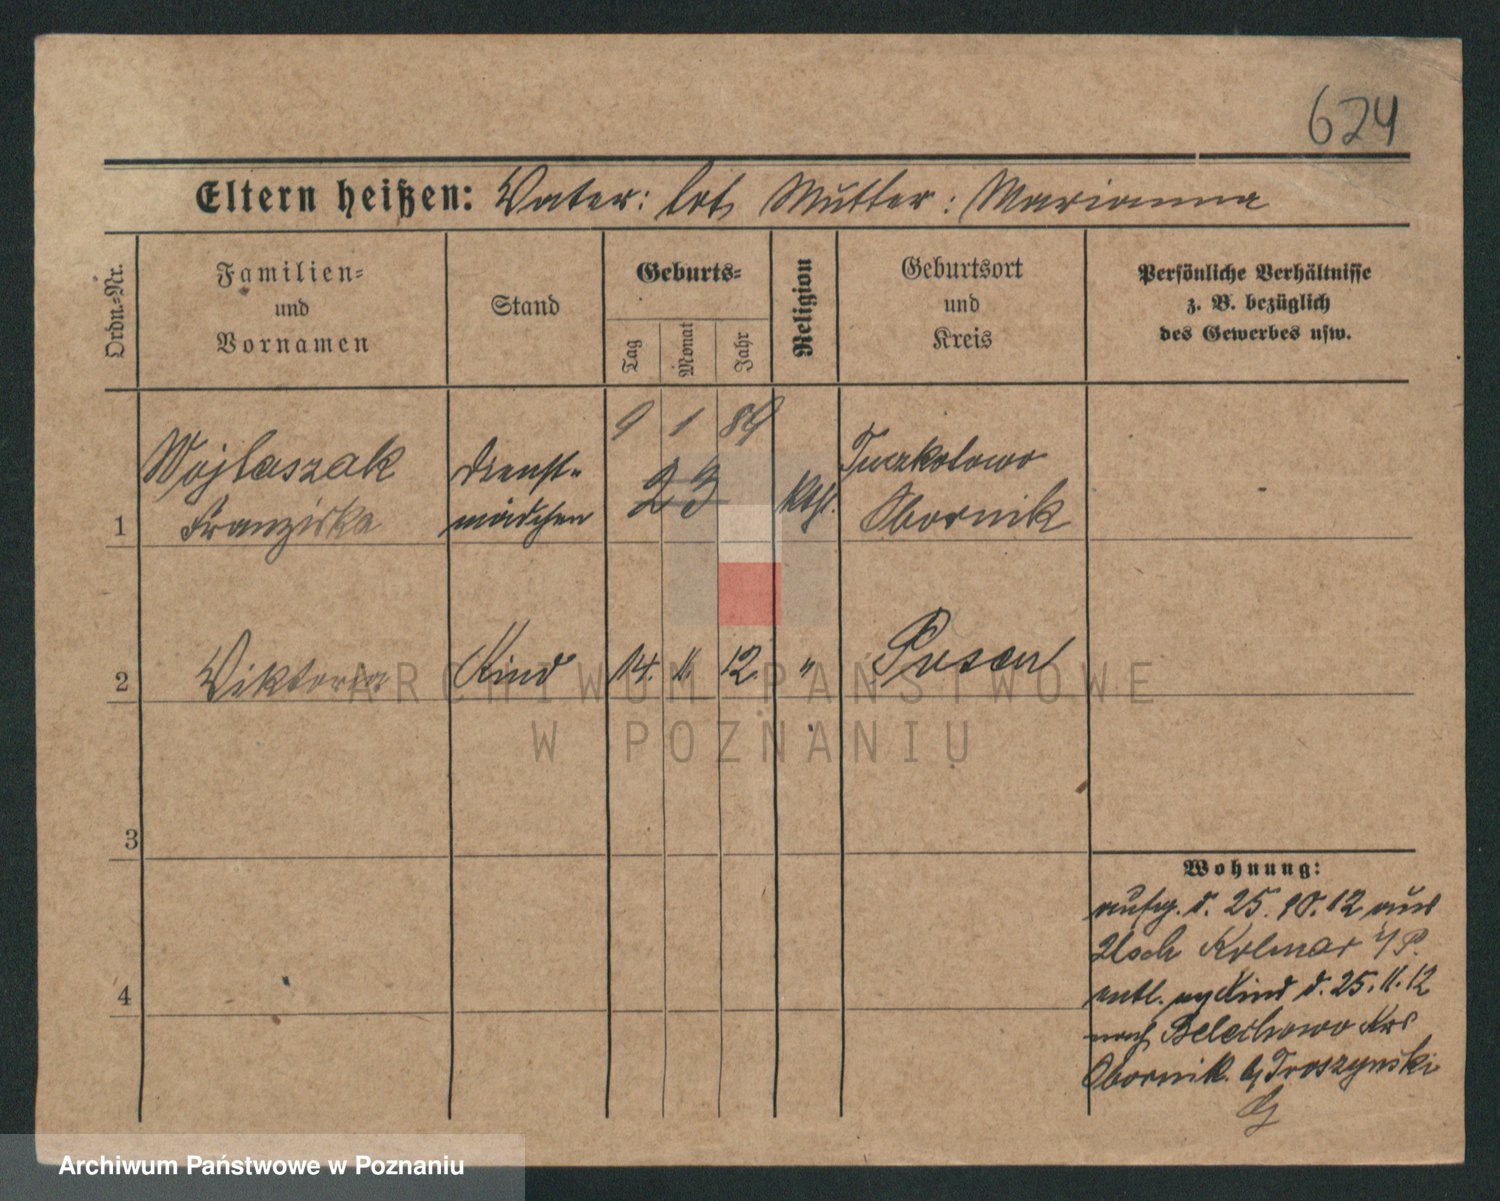 624
Eltern heißen: Vater: tot, Mutter: Marianna
Ordn.=Nr.
Familien=
und
Vornamen
Stand
Geburts=
Tag
Monat
Jahr
Religion
Geburtsort
und
Kreis
Persönliche Verhältnisse
z. B. bezüglich
des Gewerbes usw.
9 1 89
Wojtaszak Dienst=
23 Kth.
1 Franziska mädchen Obornik
2 Viktoria Kind 14. 11. 12. " Posen
3
Wohnung:
aufg. d. 25. 10. 12 aus
Usch Kolmar i/P.
4
entl. Kind d. 25. 11. 12
nach Krs
Obornik. b/ Troszynski
ARCHIWUM PAŃSTWOWE
W POZNANIU
Archiwum Państwowe w Poznaniu